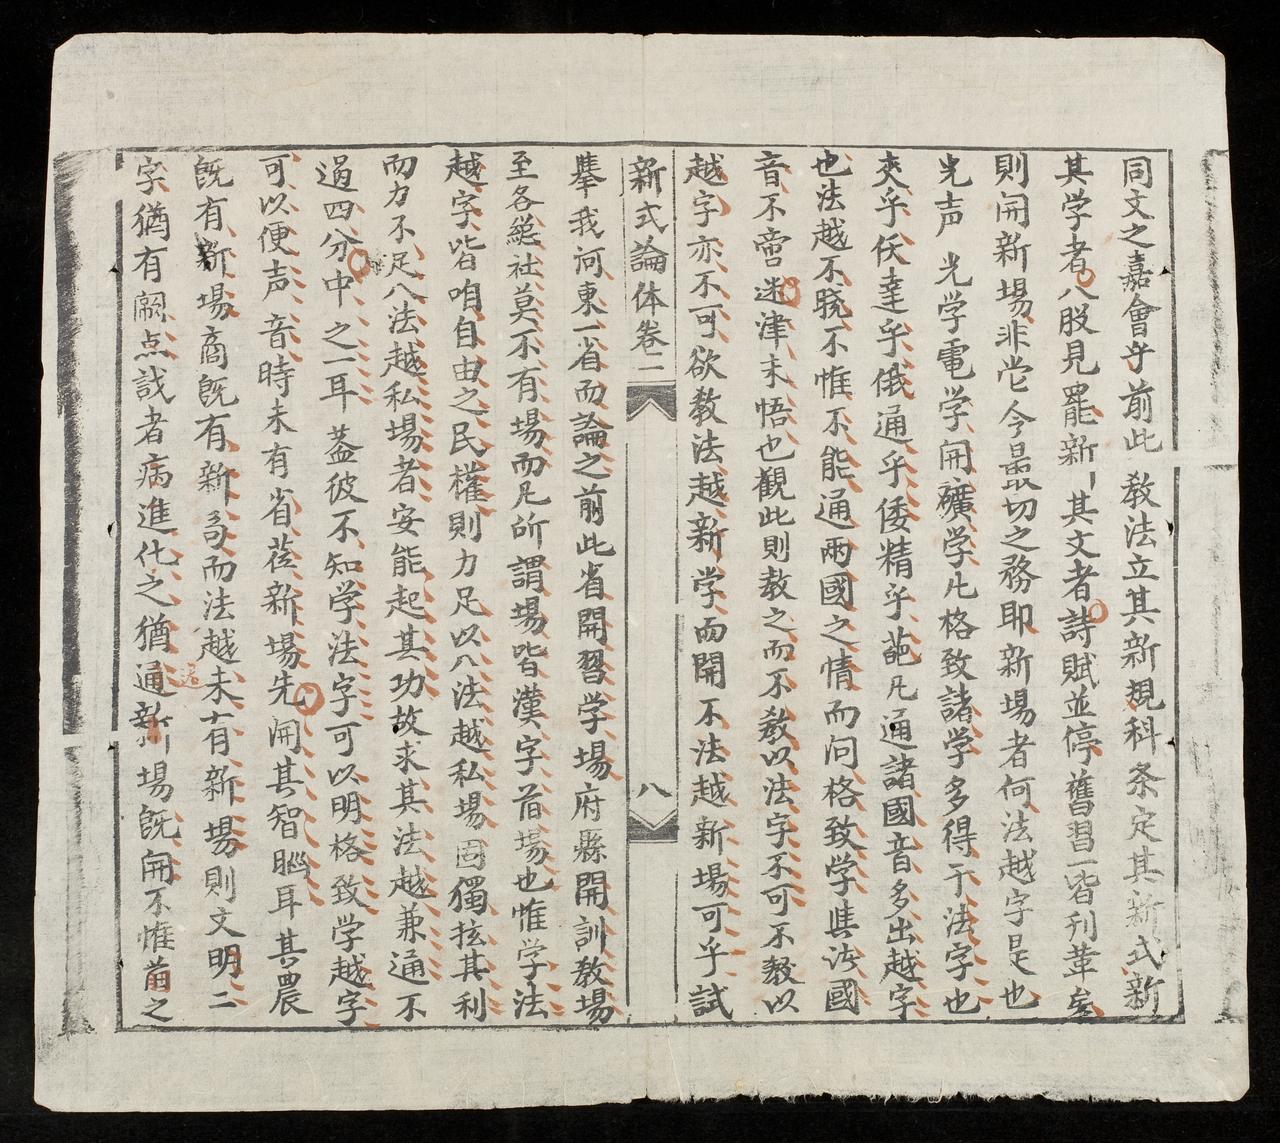 同文之嘉會乎前此教法立其新規科条定其新式新
其学者八股見罷新其文者詩賦並停舊習一皆刋革矣
則開新場非它今最切之務即新場者何法越字是也
光声光学電学開礦学凡格致諸学多得于法字也
夾乎佞達乎俄通乎倭精乎葩凡通諸國音多出越字
也法越不曉不惟不能通兩國之情而问格致学與法國
音不啻迷津未悟也觀此則教之而不教以法字不可不教以
越字亦不可欲教法越新学而開不法越新場可乎試
新式論体卷二
八
舉我河東一省而論之前此省開習学場府縣開訓教場
至各總社莫不有場而凡所謂場皆漢字莤場也惟学法
越字皆咱自由之民權則力足以八法越私場固獨拡其利
而力不足八法越私場者安能起其功故求其法越兼通不
過四分中之一耳盖彼不知学法字可以明格致学越字
可以便声音時未有省莅新場先開其智腦耳其農
既有新場商既有新哥而法越未有新場則文明二
字猶有闕点哉者病進化之猶通新場既開不惟莤之